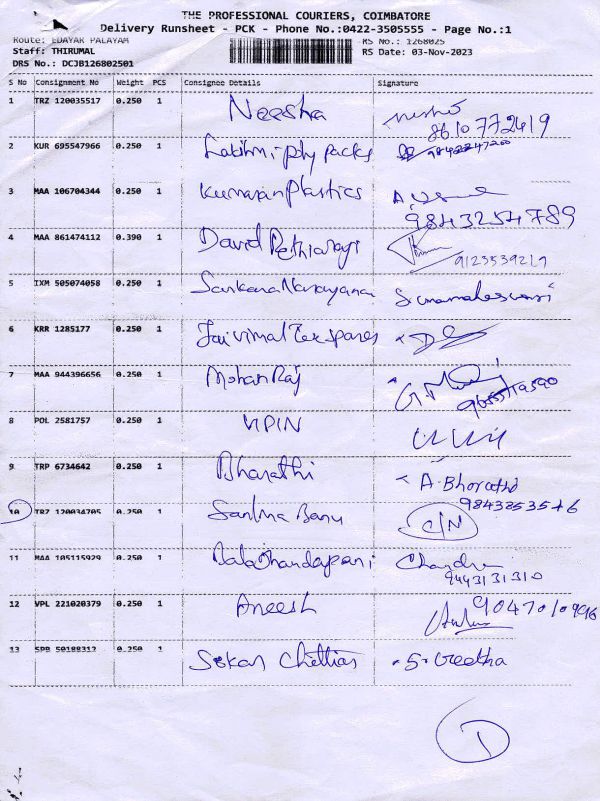 THE PROFESSIONAL COURIERS, COIMBATORE
Delivery Runsheet - PCK - Phone No.:0422-3505555 - Page No.:1
Route: EDAYAR PALAYAM RS No.: 1268025
Staff: THIRUMAL RS Date: 03-Nov-2023
DRS No.: DCJB126802501
S No Consignment No Weight PCS Consignee Details Signature
1 TRZ 120035517 0.250 1 Neesha
8610772419
2 KUR 695547966 0.250 1 Lakshmi ply packs
3 MAA 106704344 0.250 1 Kumaran Plastics
9843254789
4 MAA 861474112 0.390 1 David
5 IXM 505074058 0.250 1 Sankara Narayanan
6 KRR 1285177 0.250 1 Jai Vimal Tex spares
7 MAA 944396656 0.250 1 Mohan Raj
8 POL 2581757 0.250 1 VIPIN
9 TRP 6734642 0.250 1 Bharathi A. Bharathi
10 TRZ 120034705 0.250 1 Salma Banu C/N
11 MAA 105115929 0.250 1 Chandra
9443131310
12 VPL 221020379 0.250 1 Aneesh
13 SPB 50188312 0.250 1 Chettiar S. Geetha